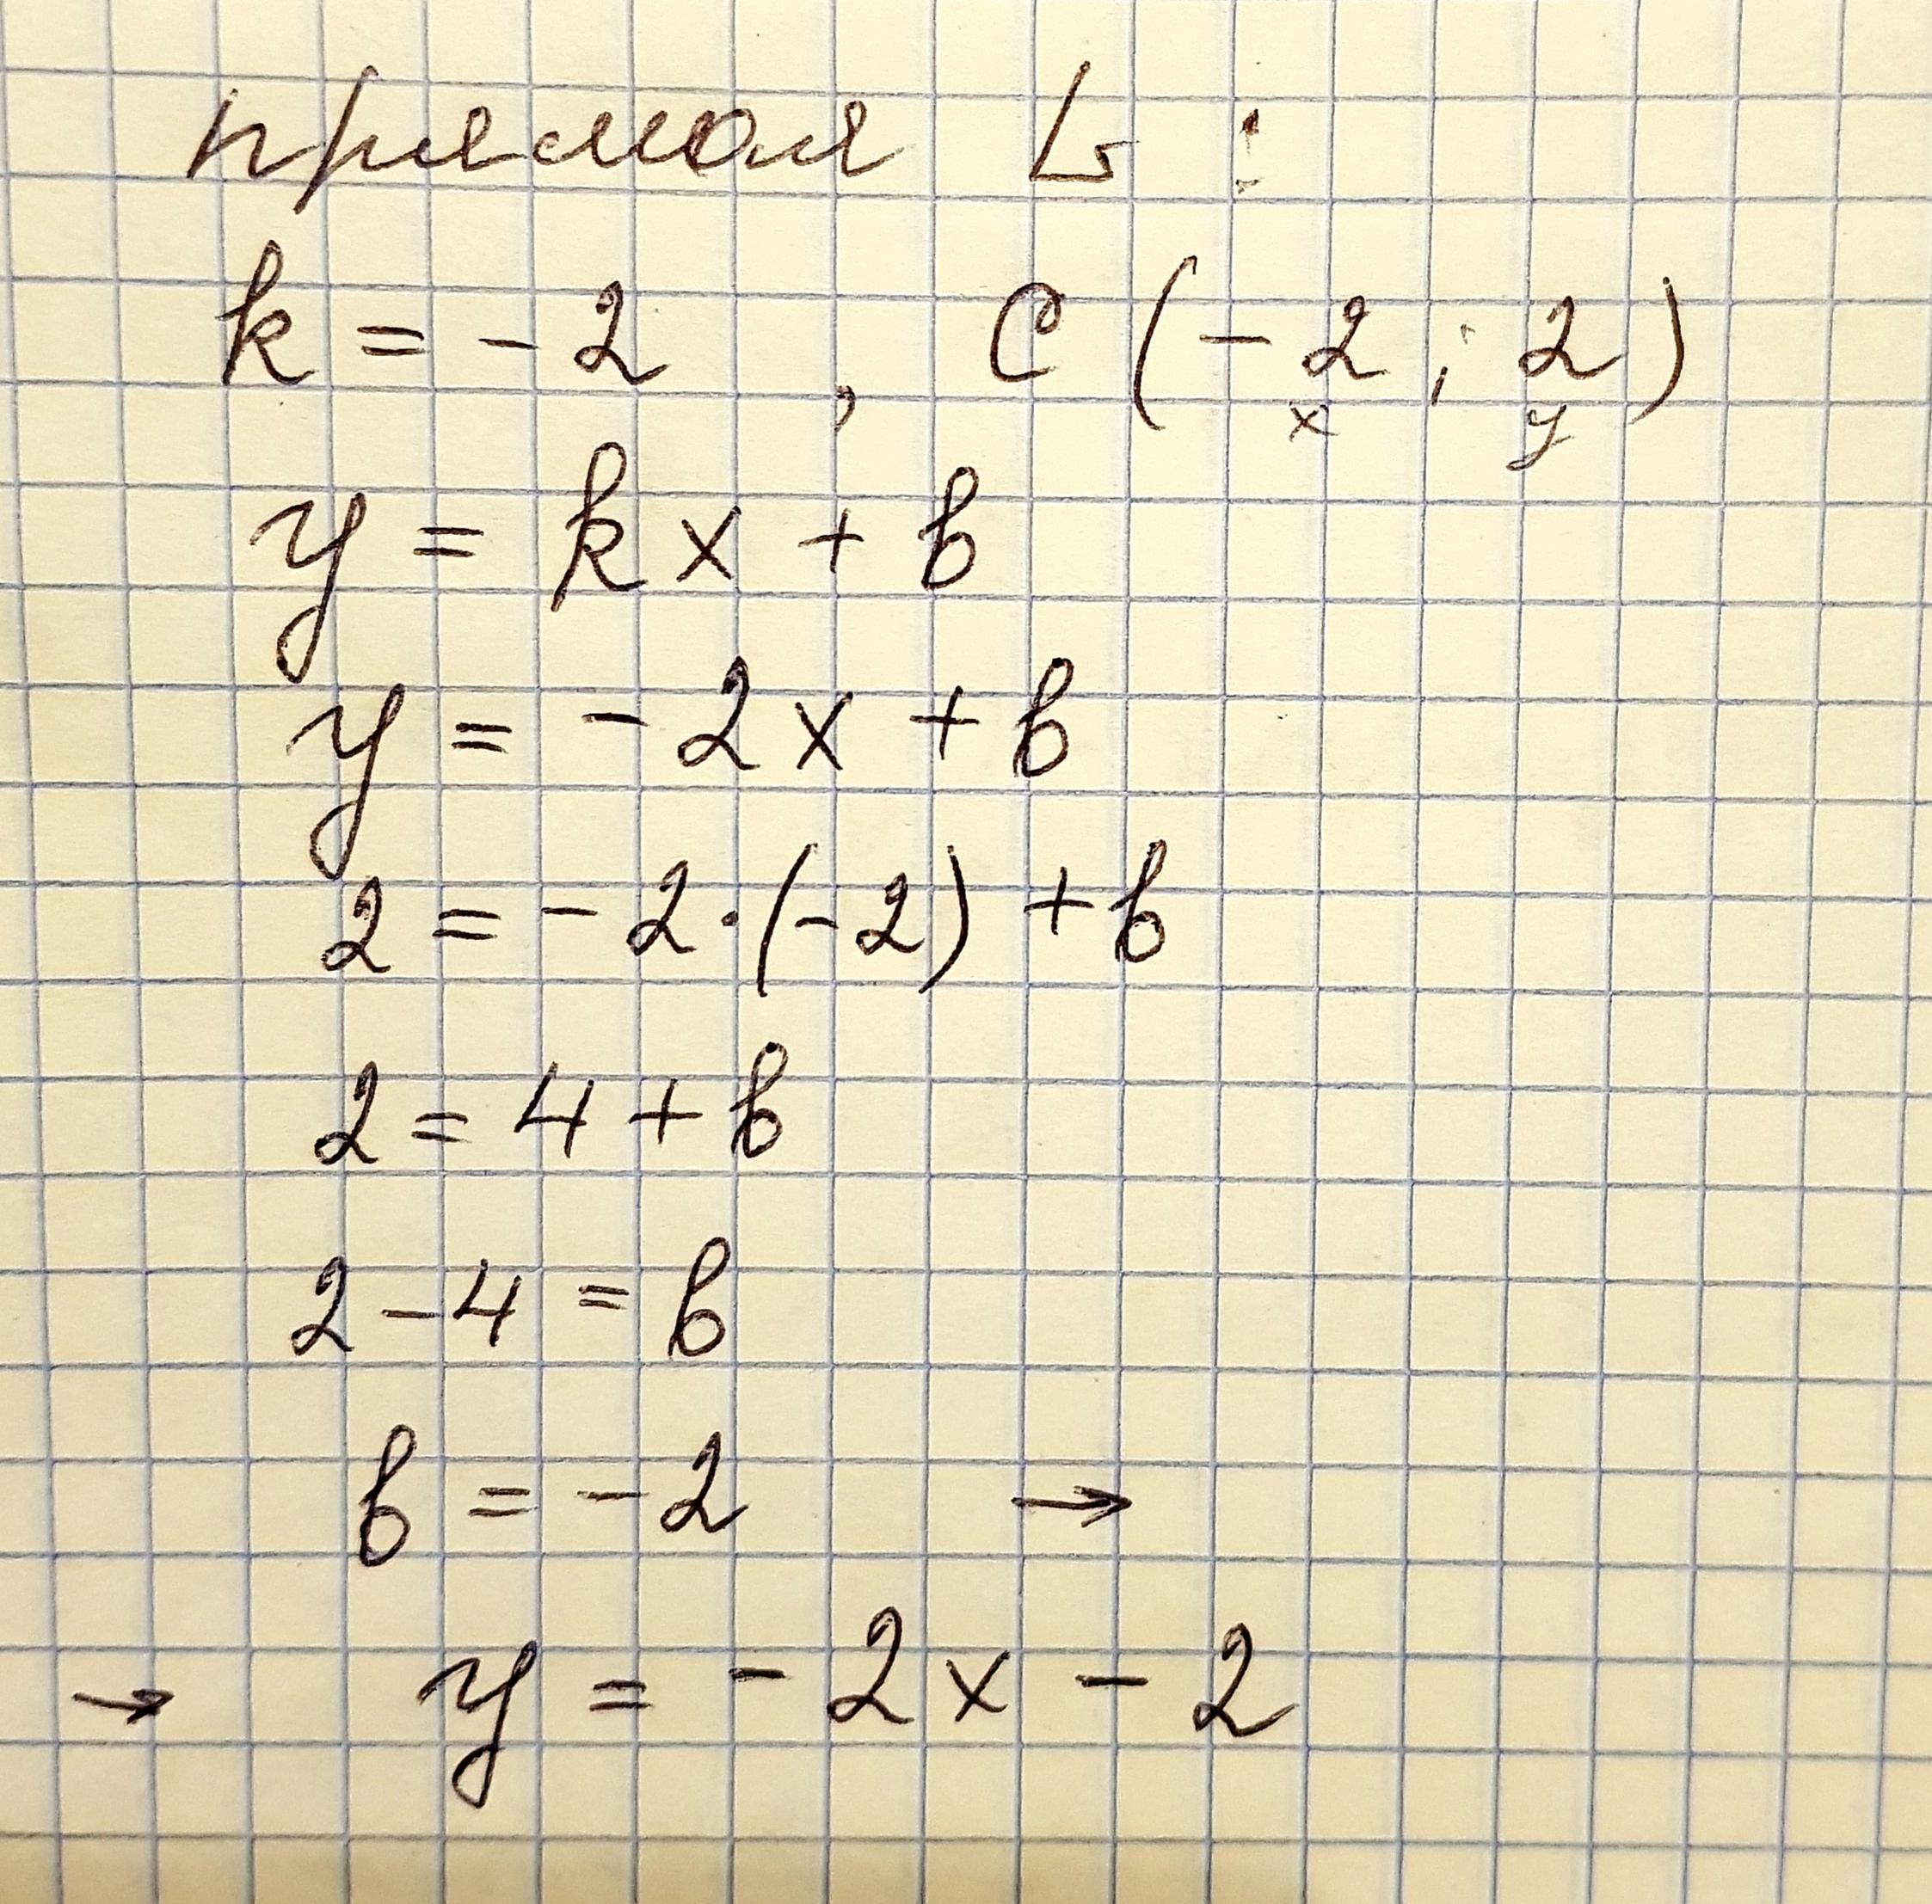 прямая L :
k = -2 , C (-2 ; 2)
x y
y = kx + b
y = -2x + b
2 = -2·(-2) + b
2 = 4 + b
2 - 4 = b
b = -2 →
→ y = -2x - 2